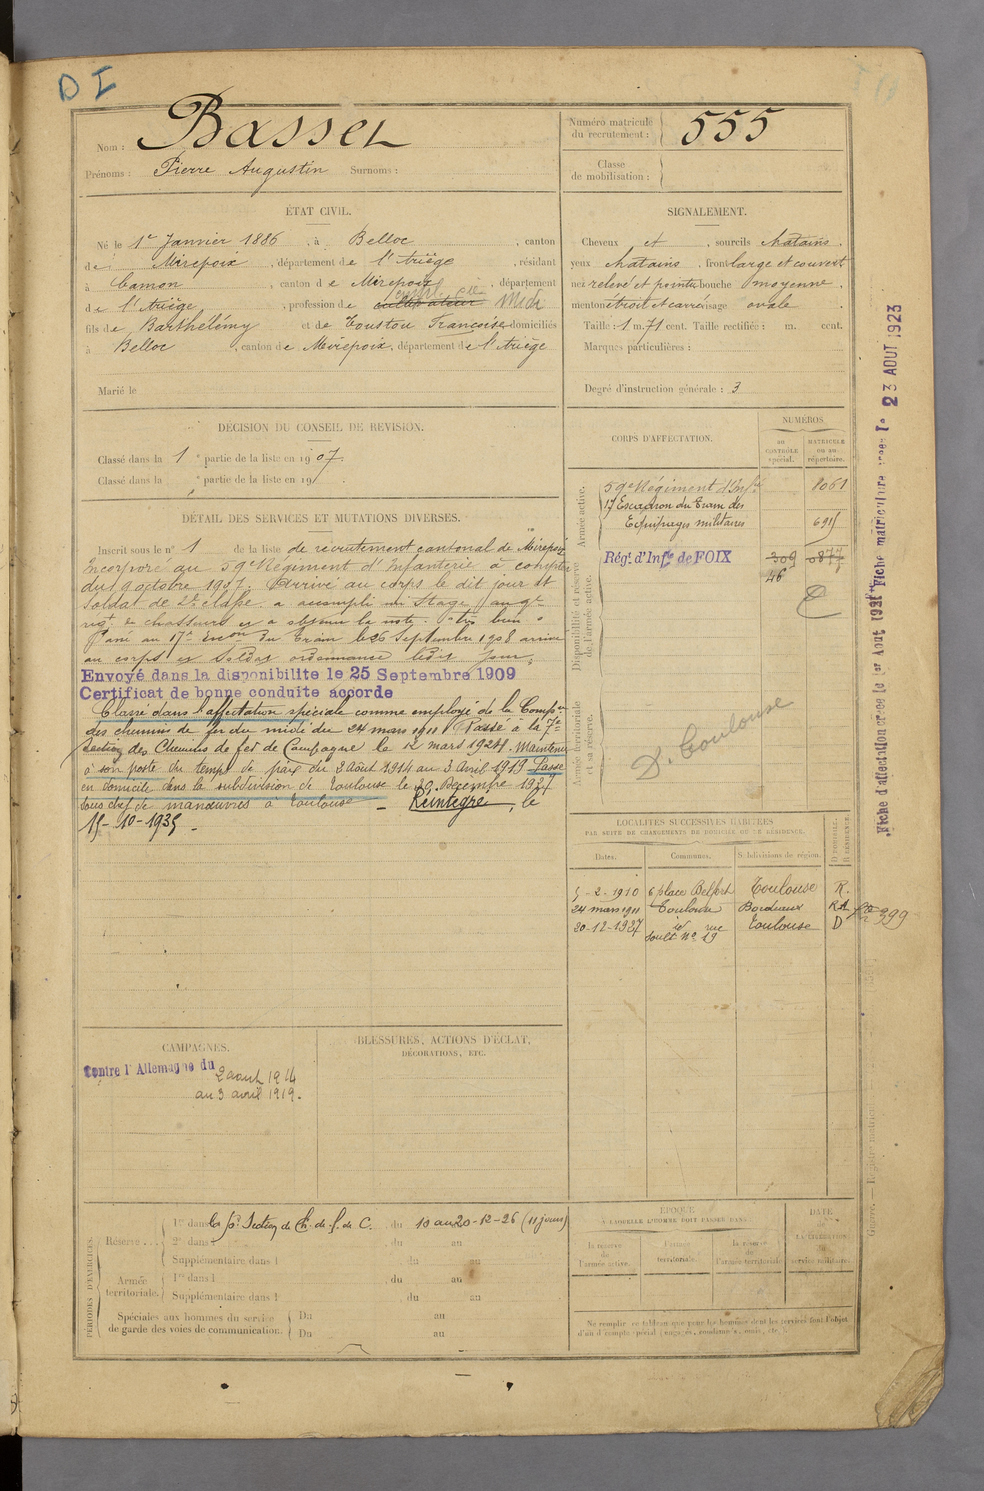 D I
Nom : Basset
Numéro matricule du recrutement : 555
Prénoms : Pierre Augustin Surnoms :
Classe de mobilisation :
ÉTAT CIVIL.
Né le 1er Janvier 1886, à Belloc, canton
de Mirepoix, département de l'Ariège, résidant
à Camon, canton de Mirepoix, département
de l'Ariège, profession de cultivateur Midi
fils de Barthélémy et de Toustou Françoise domiciliés
à Belloc, canton de Mirepoix, département de l'Ariège
Marié le
SIGNALEMENT.
Cheveux et, sourcils chatains.
yeux chatains, front large et couvert
nez relevé et pointu bouche moyenne,
menton étroit et carré visage ovale
Taille : 1 m. 71 cent. Taille rectifiée : m. cent.
Marques particulières :
Degré d'instruction générale : 3
DÉCISION DU CONSEIL DE REVISION.
Classé dans la 1e partie de la liste en 1907.
Classé dans la e partie de la liste en 19
DÉTAIL DES SERVICES ET MUTATIONS DIVERSES.
Inscrit sous le n° 1 de la liste de recrutement cantonal de Mirepoix
Incorporé au 59e Régiment d'Infanterie à compter
du 9 octobre 1907. Arrivé au corps le dit jour et
Soldat de 2e classe. a accompli un Stage au 9e
regt de chasseurs et a obtenu la note. "très bien"
Passé au 17e Escon du Train le 26 Septembre 1908 arrivé
au corps et Soldat ordonnance ledit jour,
Envoyé dans la disponibilite le 25 Septembre 1909
Certificat de bonne conduite accorde
Classé dans l'affectation spéciale comme employé de la Compie
des chemins de fer du midi du 24 mars 1911 Passé à la 7e
Section des Chemins de fer de Campagne le 12 mars 1924. Maintenu
à son poste du temps de paix du 2 Août 1914 au 3 Avril 1919 Passé
en domicile dans la subdivision de Toulouse le 20 Décembre 1927
sous chef de manœuvres à Toulouse - Réintégré, le
15-10-1935 -
CORPS D'AFFECTATION.
NUMÉROS
au CONTRÔLE spécial.
MATRICULE ou au répertoire.
Armée active.
59e Régiment d'Infie 8061
17 Escadron du Train des
Equipages militaires 6915
Disponibilité et réserve de l'armée active.
Régt d'Infie de FOIX 309 0877
46
Armée territoriale et sa réserve.
D. Toulouse
LOCALITÉS SUCCESSIVES HABITÉES
PAR SUITE DE CHANGEMENTS DE DOMICILE OU DE RÉSIDENCE.
Dates. Communes. Subdivisions de région. D domicile. R résidence.
5-2-1910 6 place Belfort Toulouse R.
24 mars 1911 Toulouse Bordeaux
20-12-1927 id rue Toulouse D
Soult N° 19
399
CAMPAGNES.
Contre l'Allemagne du
2 aout 1914
au 3 avril 1919.
BLESSURES, ACTIONS D'ÉCLAT,
DÉCORATIONS, ETC.
PÉRIODES D'EXERCICES.
Réserve... 1re dans la Section de Ch. de f. de C. du 10 au 20-12-26 (11 jours)
2e dans l du au
Supplémentaire dans l du au
Armée territoriale. 1re dans l du au
Supplémentaire dans l du au
Spéciales aux hommes du service de garde des voies de communication. Du au
Du au
ÉPOQUE
À LAQUELLE L'HOMME DOIT PASSER DANS
la réserve de l'armée active.
l'armée territoriale.
la réserve de l'armée territoriale
DATE de LA LIBÉRATION du service militaire.
Ne remplir ce tableau que pour les hommes dont les services font l'objet
Fiche matriculaire
23 AOUT 1923
Fiche d'affectation créée le 1er Août 192